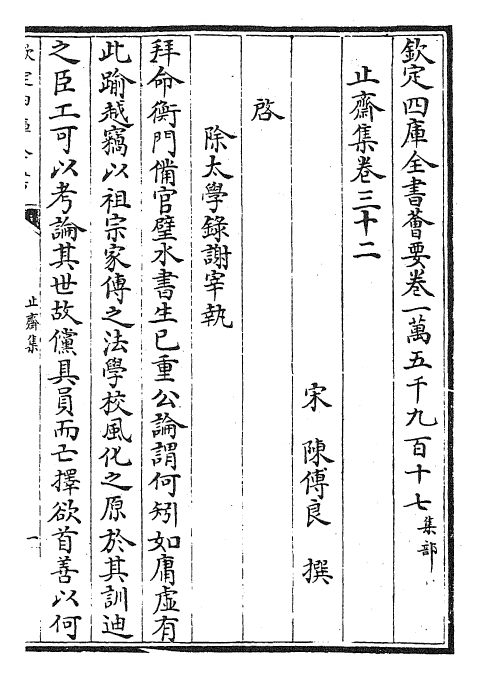 欽定四庫全書薈要卷一萬五千九百十七集部
止齋集卷三十二
宋 陳傅良 撰
啓
除太學錄謝宰執
拜命衡門備官璧水書生已重公論謂何矧如庸虛有
此踰越竊以祖宗家傳之法學校風化之原於其訓迪
之臣工可以考論其世故儻具員而亡擇欲首善以何
止齋集
一